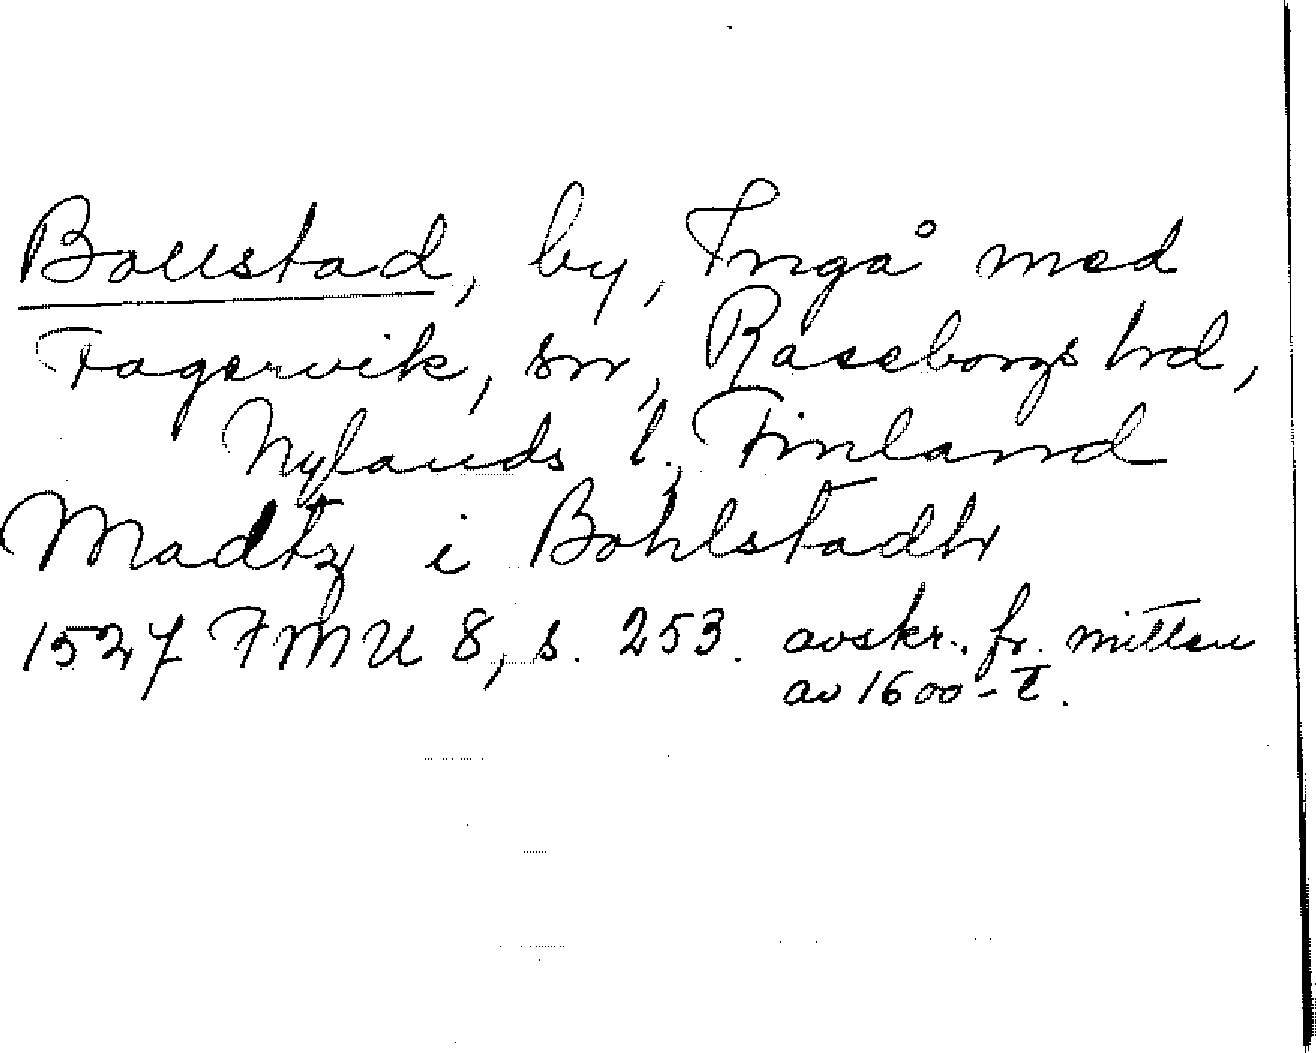 Bollstad, by, Ingå med
Fagervik, sn, Raseborgs hd,
Nylands l., Finland
Madtz i Bohlstadh
1527 FMU 8, s. 253. avskr. fr. mitten
av 1600-t.